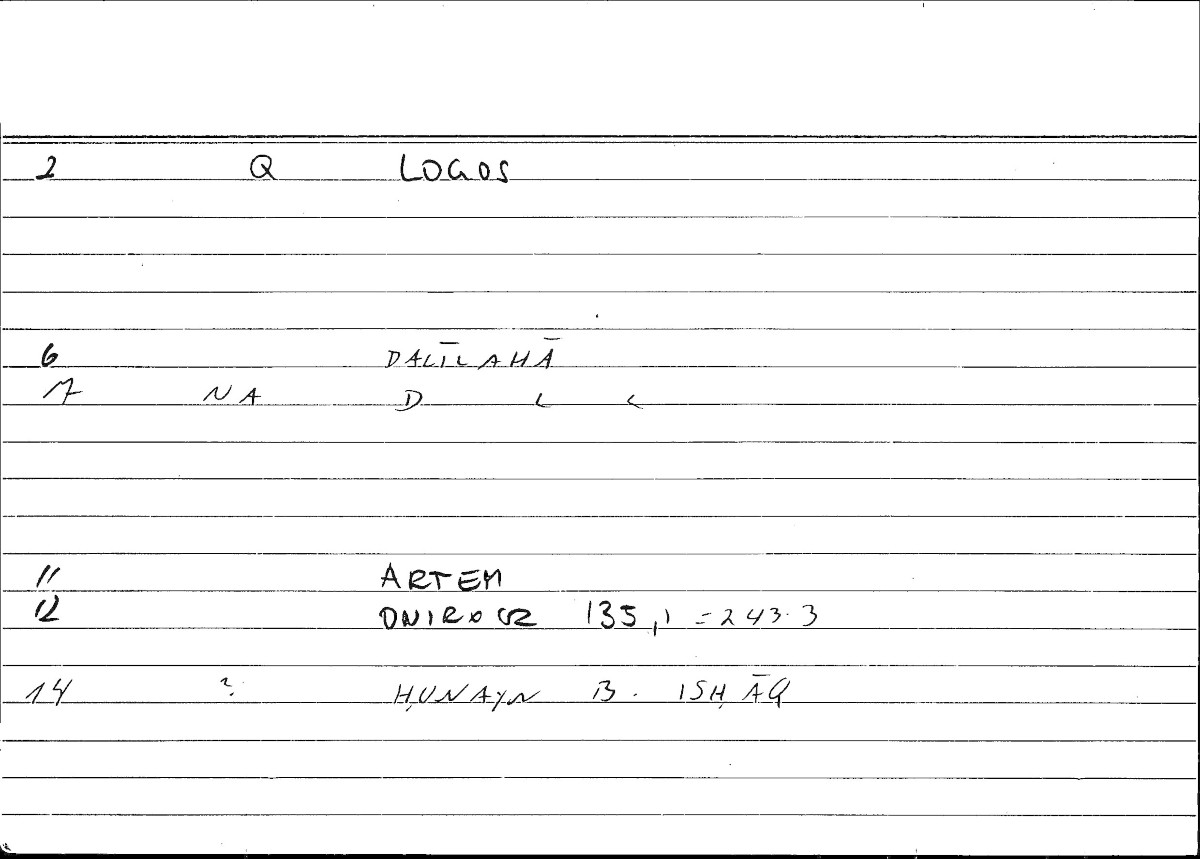 2 Q LOGOS
6 DALĪLAHĀ
7 NA D L L
11 ARTEM
12 ONIROCR 135,1 = 243.3
14 ? ḤUNAYN B. ISḤĀQ